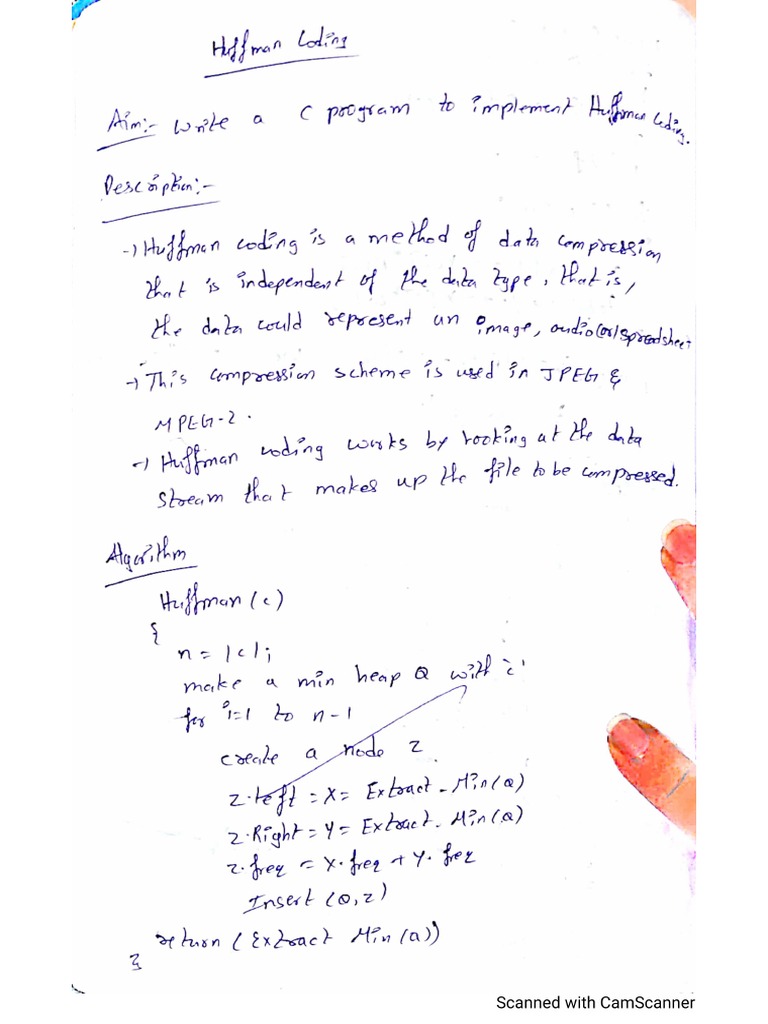 Huffman Coding
Aim:- Write a C program to implement Huffman Coding.
Description:-
→ Huffman coding is a method of data compression
that is independent of the data type, that is,
the data could represent an image, audio (or) spreadsheet
→ This compression scheme is used in JPEG &
MPEG-2.
→ Huffman coding works by looking at the data
stream that makes up the file to be compressed.
Algorithm
Huffman (c)
{
n = |c|;
make a min heap Q with 'c'
for i=1 to n-1
create a node z
z.left = X = Extract-Min(Q)
z.Right = Y = Extract-Min(Q)
z.freq = X.freq + Y.freq
Insert (Q,z)
return (Extract Min(Q))
}
Scanned with CamScanner